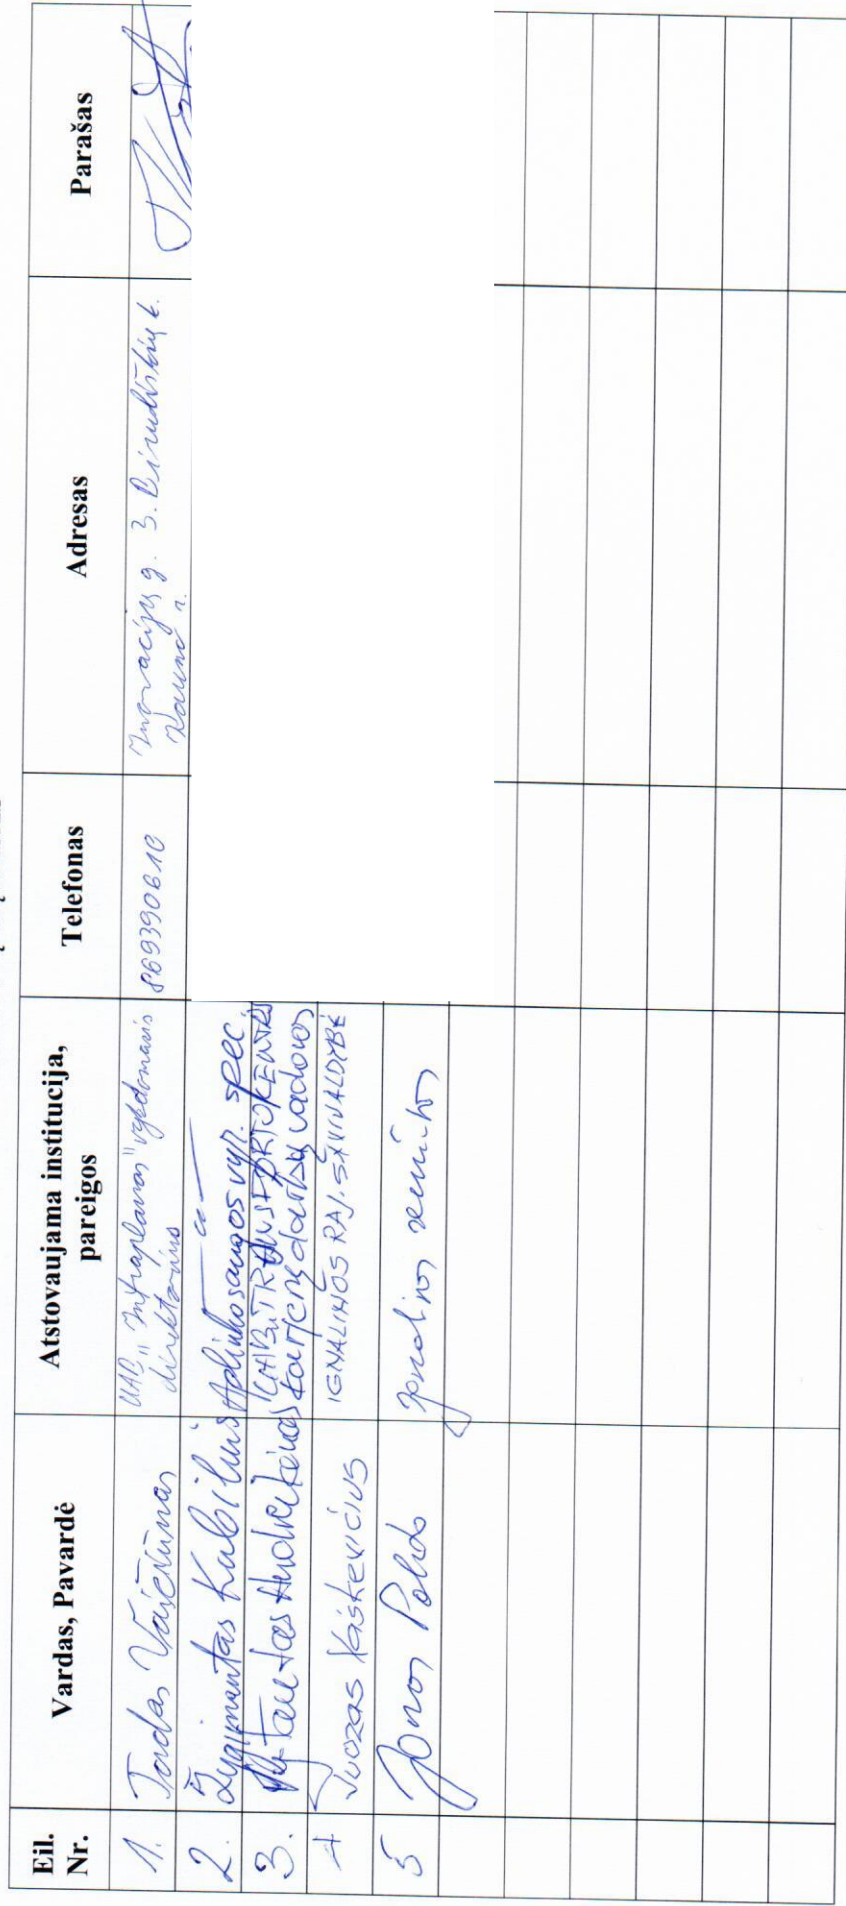 Eil. Nr.
Vardas, Pavardė
Atstovaujama institucija, pareigos
Telefonas
Adresas
Parašas
1. Tadas Vaičiūnas
UAB „Infraplanas" vykdomasis
direktorius
869390610
Inovacijų g. 3. Biruliškių k.
Kauno r.
2. Žygimantas Kubilius
Aplinkosaugos vyr. spec.
3. Vytautas
darbų vadovas
4 Juozas Vaškevičius
IGNALINOS RAJ. SAVIVALDYBĖ
5 Jonas